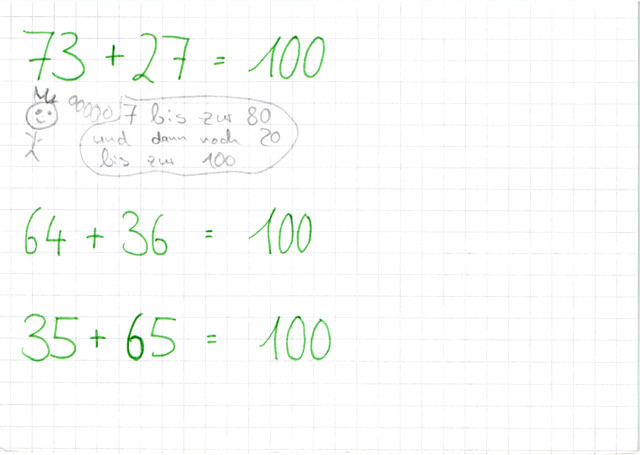 73 + 27 = 100
7 bis zur 80
und dann noch 20
bis zur 100
64 + 36 = 100
35 + 65 = 100